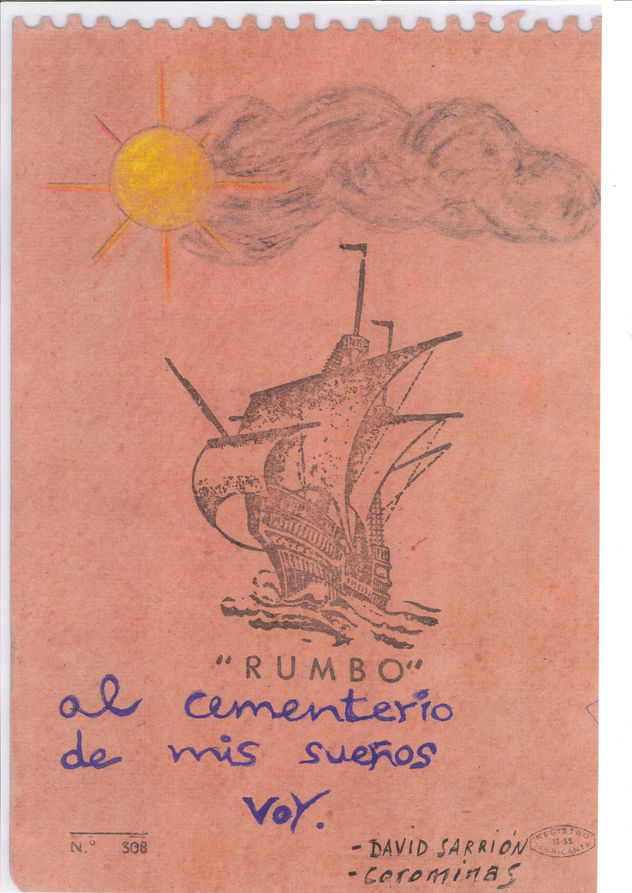 "RUMBO"
al cementerio
de mis sueños
voy.
N.º 308
- DAVID SARRIÓN
- Corominas
REGISTRO
15-SS
FABRICANTE